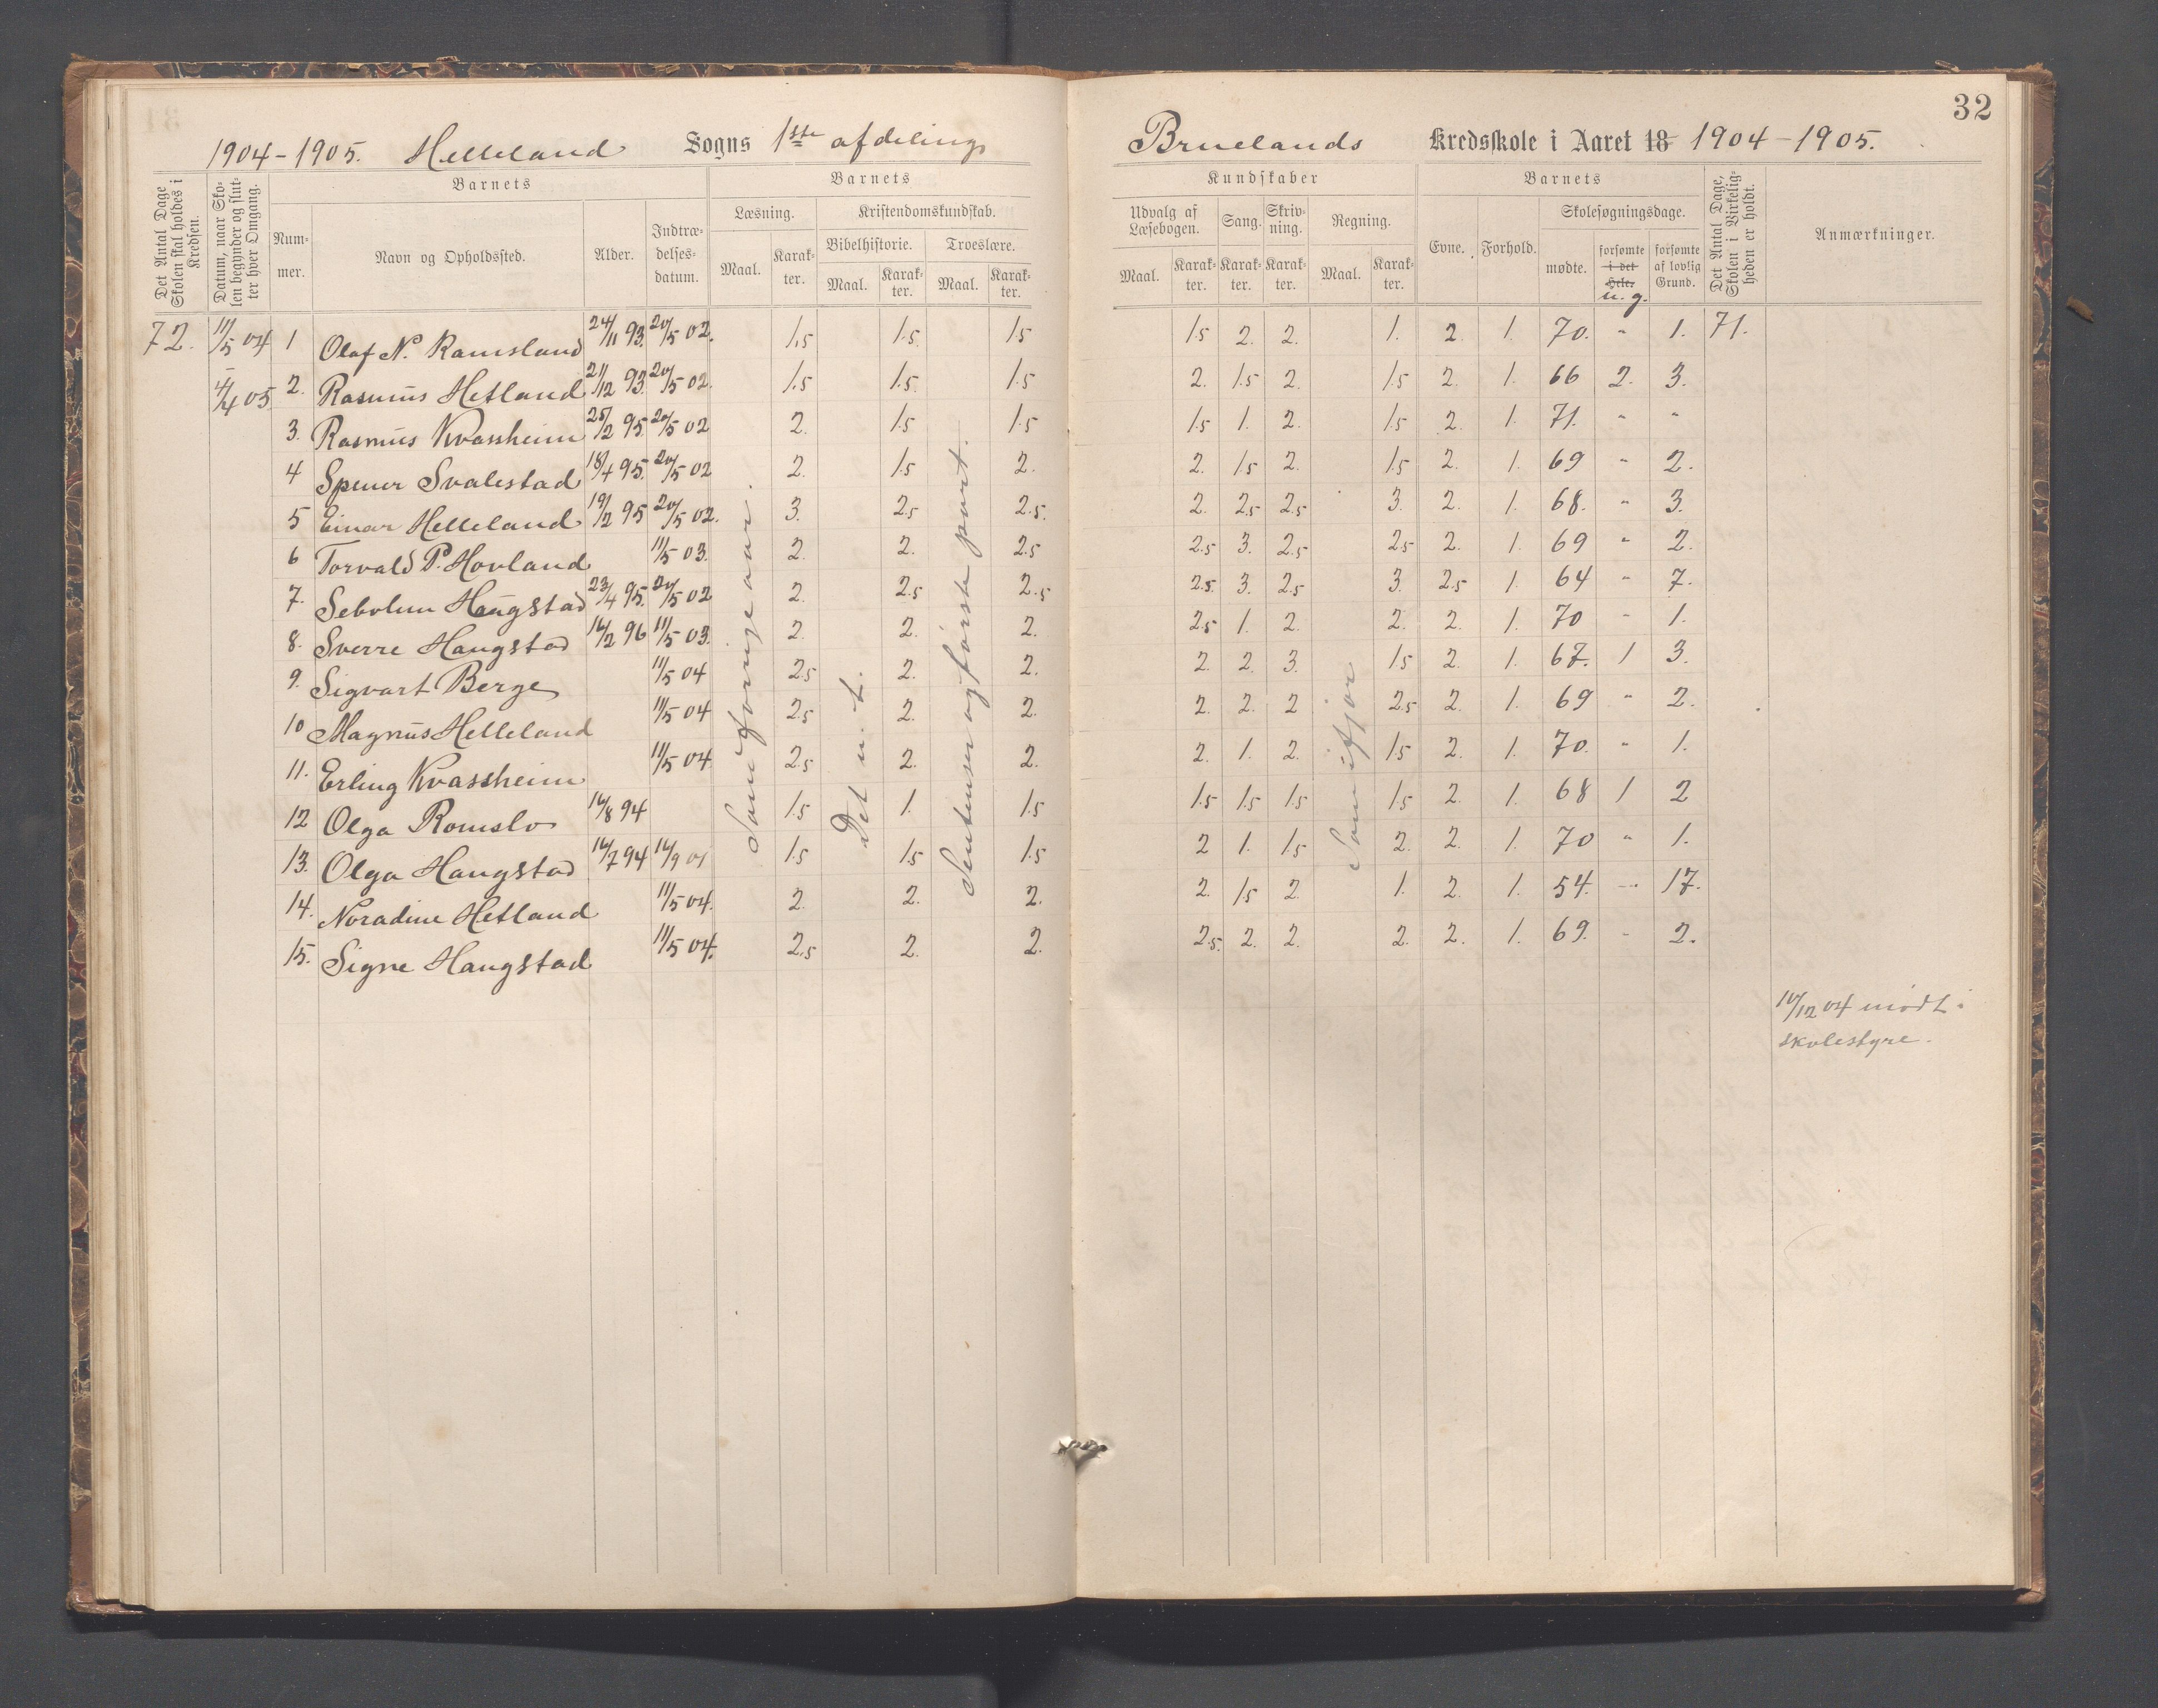 32
1904-1905. Helleland Sogns 1ste afdeling
Bruelands Kredsskole i Aaret 18 1904-1905.
Det Antal Dage Skolen skal holdes i Kredsen.
Datum, naar Skolen begynder og slutter hver Omgang.
Barnets
Nummer.
Navn og Opholdssted.
Alder.
Indtrædelsesdatum.
Barnets
Læsning.
Maal.
Karakter.
Kristendomskundskab.
Bibelhistorie.
Maal.
Karakter.
Troeslære.
Maal.
Karakter.
Kundskaber
Udvalg af Læsebogen.
Maal.
Karakter.
Sang.
Karakter.
Skrivning.
Karakter.
Regning.
Maal.
Karakter.
Barnets
Evne.
Forhold.
Skolesøgningsdage.
mødte.
forsømte i det Hele.
u. g.
forsømte af lovlig Grund.
Det Antal Dage, Skolen i Virkeligheden er holdt.
Anmærkninger.
72. 11/5 04 1 Olaf N. Ramsland 24/11 93. 20/5 02. 1.5 1.5 1.5 1.5 2. 2. 1. 2. 1. 70. " 1. 71.
4/4 05. 2. Rasmus Hetland 21/12 93. 20/5 02. 1.5 1.5 1.5 2. 1.5 2. 1.5 2. 1. 66 2. 3.
3. Rasmus Kvassheim 25/2 95. 20/5 02 2. 1.5 1.5 1.5 1. 2. 1.5 2. 1. 71. " "
4 Spener Svalestad 18/4 95. 20/5 02 2. 1.5 2. 2. 1.5 2. 1.5 2. 1. 69 " 2.
5 Einar Helleland 19/2 95 20/5 02. 3. 2.5 2.5. 2. 2.5 2.5 3. 2. 1. 68. " 3.
6 Torvald P. Hovland 11/5 03. 2. 2. 2.5 2.5 3. 2.5 2.5 2. 1. 69 " 2.
7. Sebolun Haugstad 23/4 95. 20/5 02 2. 2.5 2.5 2.5. 3. 2.5 3. 2.5 1. 64 " 7.
8. Sverre Haugstad 16/2 96 11/5 03. 2. 2. 2. 2.5 1. 2. 2. 2. 1. 70 " 1.
9. Sigvart Berge 11/5 04 2.5 2. 2. 2. 2. 3. 1.5 2. 1. 67. 1 3.
10 Magnus Helleland 11/5 04 2.5 2. 2. 2. 2. 2 2.5 2. 1. 69 " 2.
11. Erling Kvassheim 11/5 04. 2.5 2. 2. 2. 1. 2. 1.5 2. 1. 70. " 1.
12 Olga Romslo 16/8 94 1.5 1. 1.5 1.5 1.5 1.5 1.5 2. 1. 68 1 2
13. Olga Haugstad 16/7 94 16/9 01 1.5 1.5 1.5 2 1. 1.5 2. 2. 1. 70 " 1.
14. Noradine Hetland 11/5 04. 2. 2. 2. 2. 1.5 2. 1. 2. 1. 54. " 17.
15. Signe Haugstad 11/5 04. 2.5 2. 2. 2.5. 2. 2. 2. 2. 1. 69. " 2.
Som forrige aar.
Det n. t.
Sentensen og første part.
Som ifjor
10/12 04 mødt i
skolestyre.